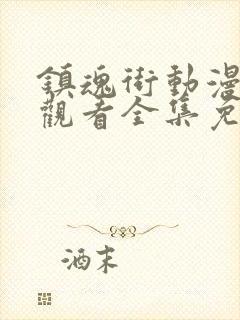 鎮魂街動漫
觀看全集免
酒末